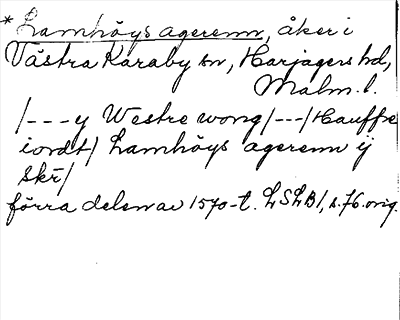 *Lamhöys agerenn, åker i
Västra Karaby sn, Harjagers hd,
Malm. l.
/---y Westre wong/---/Hauffre
iordt/ Lamhöys agerenn ij
skr/
förra delen av 1570-t. LSLB1, s.76.orig.